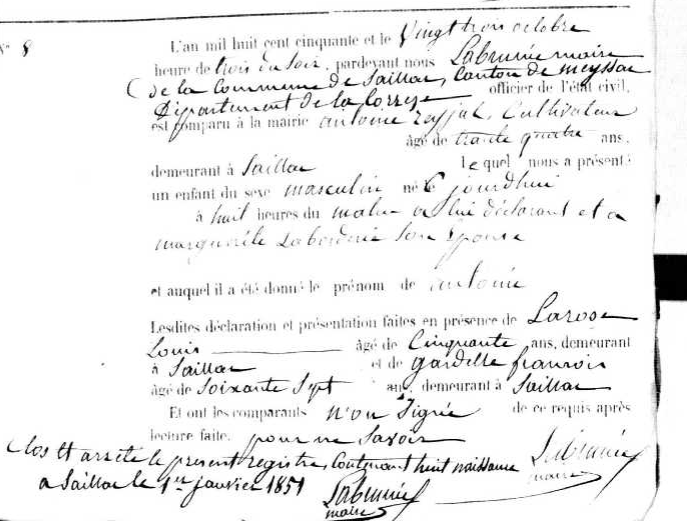 N° 8
L'an mil huit cent cinquante et le Vingt trois octobre
heure de trois du soir, pardevant nous Labrunie maire
de la Commune de Saillac, Canton de meyssac
officier de l'état civil,
Département de la Corrèze
est comparu à la mairie antoine reyjal, Cultivateur
âgé de trante quatre ans,
demeurant à Saillac lequel nous a présenté
un enfant du sexe masculin né Ce jourdhui
à huit heures du matin a lui déclarant et a
marguerite Laborderie Son Epouse
et auquel il a été donné le prénom de antoine
Lesdites déclaration et présentation faites en présence de Larose
Louis âgé de Cinquante ans, demeurant
à Saillac et de gardelle francois
âgé de Soixante Sept ans, demeurant à Saillac
Et ont les comparants n'on Signée de ce requis après
lecture faite. pour ne Savoir
Clos et arrêté le présent registre, Contenant huit naissance
a Saillac le 1er janvier 1851
Labrunie
maire
Labrunie
maire